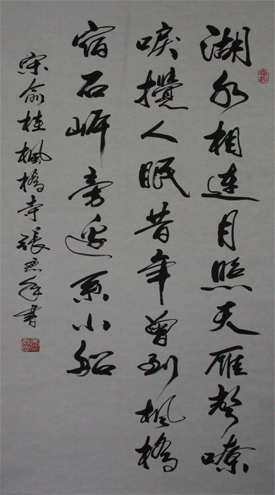 湖水相连月照天雁声嘹
唳搅人眠昔年曾到枫桥
宿石岸旁边系小船
宋俞桂枫桥寺張君年書